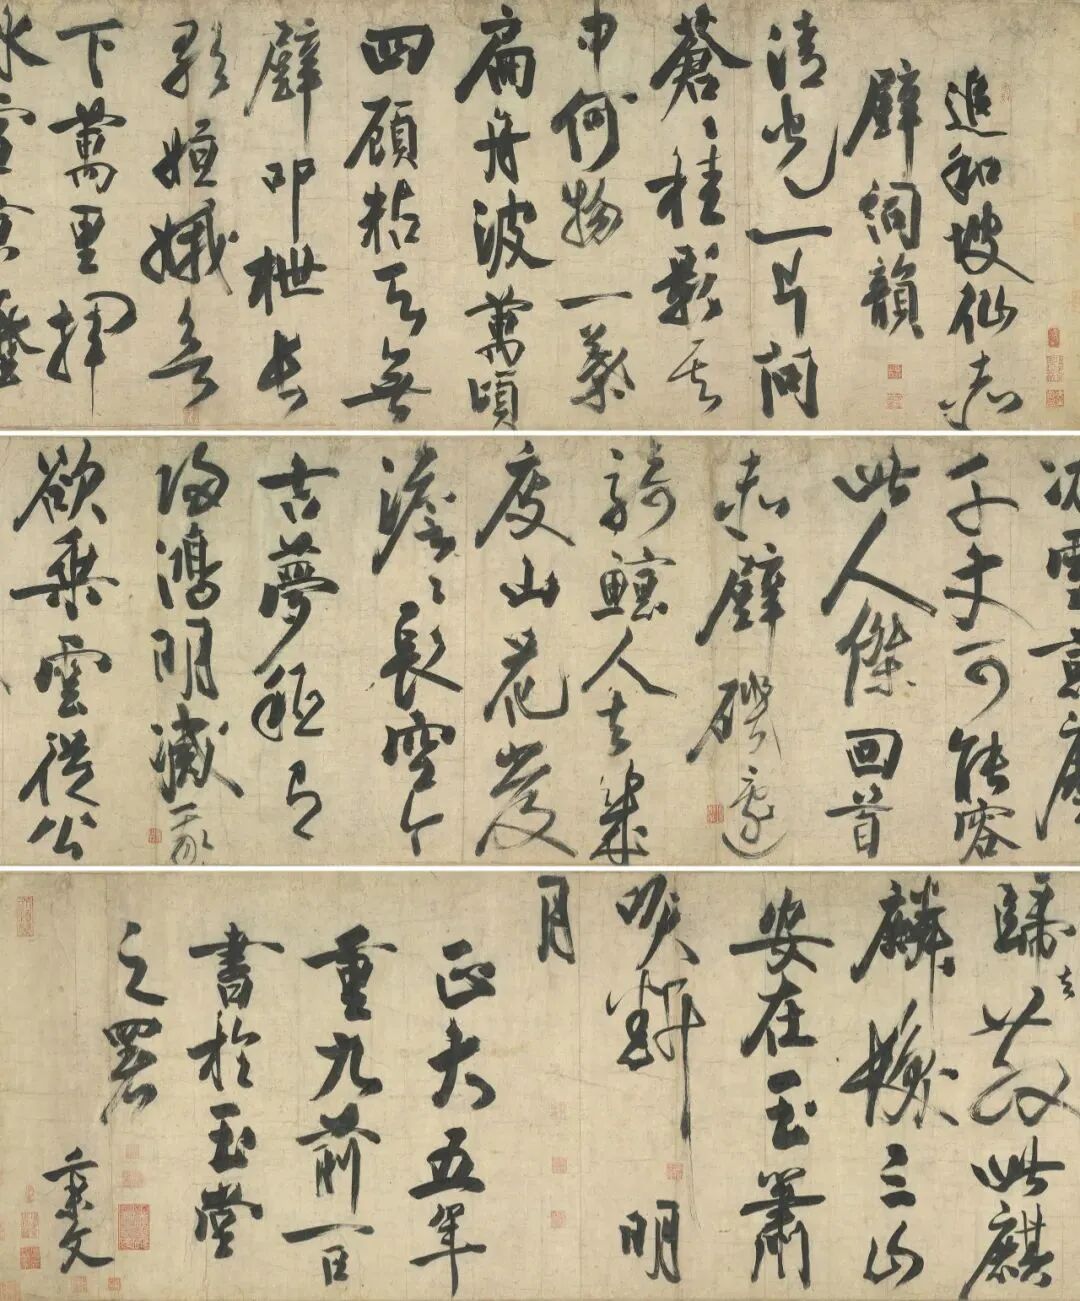 追和坡仙赤
壁詞韻
清光一片問
蒼〻桂影其
中何物一葉
扁舟波萬頃
四顧粘天無
壁叩枻長
歌姮娥欲
下萬里揮
冰雪京塵
千丈可能容
此人傑回首
赤壁磯邊
騎鯨人去幾
度山花發
澹〻長空今
古夢秖有
歸鴻明滅我
欲乘雲從公
歸去散此麒
麟髮三山
安在玉簫
吹斷明
月
正大五年
重九前一日
書於玉堂
之署
秉文